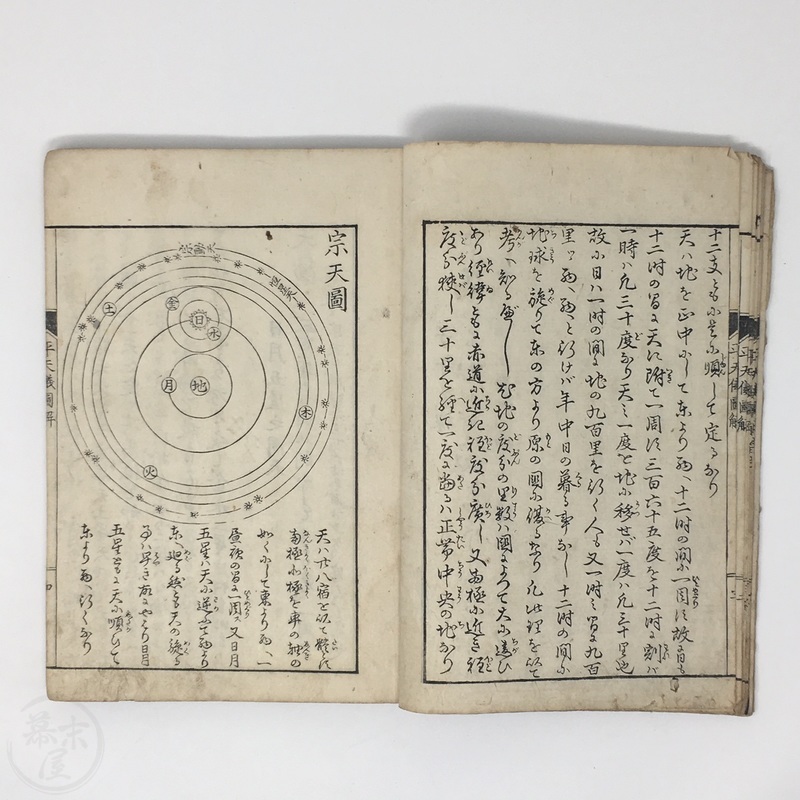 十二支とも小是に順して定るなり
天ハ地を正中にして東より西へ十二時の間に一周す故に日も
十二時の間に天に附て一周す三百六十五度を十二時に割ハ
一時ハ凡三十度なり天三一度を地に移せば一度ハ凡三十里也
故に日ハ一時の間に地の九百里を行く人も又一時に九百
里西へ西へと行けば年中日の暮る事なし十二時の間に
地球を旋りて東の方より原の国に復るなり凡此理を以て
考へ知るべし尤地の度分の里数ハ国によつて大に違ひ
あり経緯ともに赤道に近ハ経度分廣し又南極に近き経
度分狭し三十里を経て一度に当るハ正帯中央の地なり
平天儀圖解
宗天圖
宗動天
恒星天
土
金
日
水
月
地
木
火
天ハ廿八宿を以て體とす
南極北極を車の軸の
如くにして東より西へ一
昼夜の間に一周す又日月
五星ハ天に逆ふて西より
東へ廻る然とも天の旋る
事ハ早き故にやはり日月
五星ともに天に順ひて
東より西へ行くなり
平天儀圖解
幕末屋